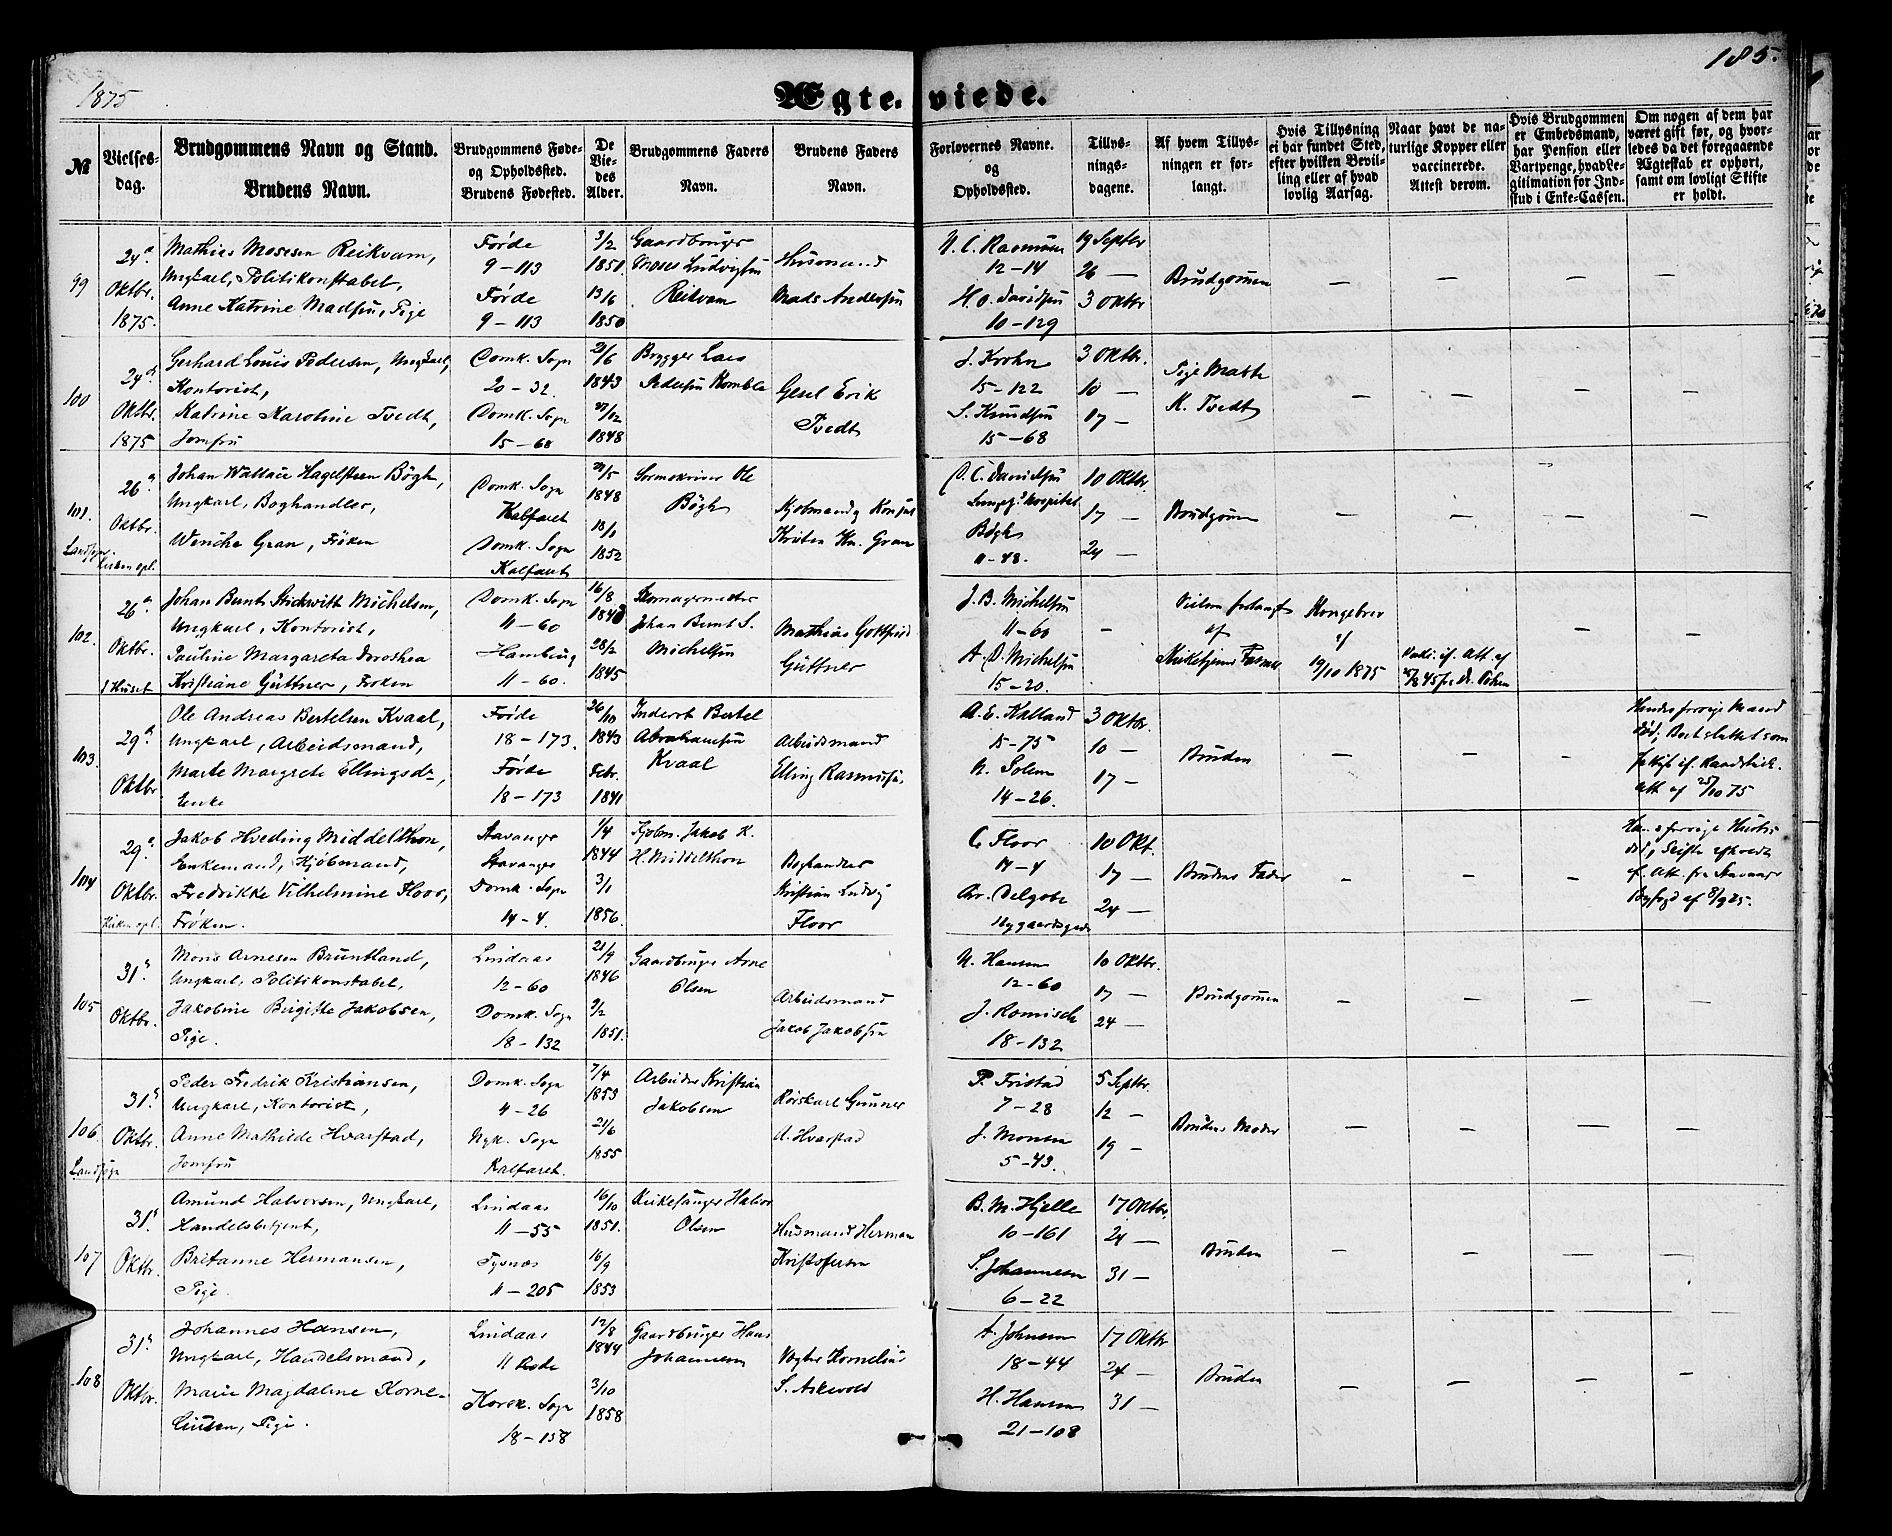 1875
185.
Ægte-viede.
№
Vielses-dag.
Brudgommens Navn og Stand.
Brudens Navn.
Brudgommens Føde- og Opholdssted.
Brudens Fødested.
De Vie-des Alder.
Brudgommens Faders Navn.
Brudens Faders Navn.
Forlovernes Navne. og Opholdssted.
Tillys-nings-dagene.
Af hvem Tillys-ningen er for-langt.
Hvis Tillysning ei har fundet Sted, efter hvilken Bevil-ling eller af hvad lovlig Aarsag.
Naar havt de na-turlige Kopper eller vaccinerede. Attest derom.
Hvis Brudgommen er Embedsmand, har Pension eller Vartpenge, hvad Le-gitimation for Ind-skud i Enke-Cassen.
Om nogen af dem har været gift før, og hvor-ledes da det foregaaende Ægteskab er ophørt, samt om lovligt Skifte er holdt.
99
24de Oktbr. 1875.
Mathias Mosesen Reikvam,
Ungkarl, Politikonstabel,
Anne Katrine Madsen, Pige
Førde
9-113
Førde
9-113
3/2 1851
13/6 1850
Gaardbruger
Moses Ludvigsen
Reikvam
Husmand
Mads Andersen
N. C. Rasmussen
12-14
H. O. Davidsen
10-129
19 Septbr
26 —
3 Oktbr
Brudgommen
— — — —
100
24de Oktbr. 1875
Gerhard Louis Pedersen, Ungkarl,
Kontorist,
Katrine Karoline Tvedt,
Jomfru
Domk. Sogn
20-32.
Domk. Sogn
15-68
21/6 1843
27/12 1848
Brygger Lars
Pedersen Komble
Gesel Erik
Tvedt
J. Krohn
15-122
S. Knudsen
15-68
3 Oktbr.
10 —
17 —
Pige Marthe
K. Tvedt
— — — —
101.
26de Oktbr.
Landsogn.
Kirken opl.
Johan Wallace Hagelsteen Bøgh,
Ungkarl, Boghandler,
Wenche Gran, Frøken
Domk. Sogn
Kalfaret
Domk. Sogn
Kalfaret
29/5 1848
18/1 1852
Sorenskriver Ole
Bøgh
Kjøbmand Konsul
Kristen Kn. Gran
D. C. Danielsen
Lungg.s Hospital
Bøgh
11-48.
10 Oktbr.
17 —
24 —
Brudgommen
— — — —
102.
26de Oktbr.
I Huset
Johan Bernt Stickwitt Michelsen,
Ungkarl, Kontorist,
Pauline Margareta Dorothea
Kristiane Güttner, Frøken
Domk. Sogn
11-60
Hamburg
11-60.
16/8 1843
28/2 1845
Skomagermester
Johan Bernt S.
Michelsen
Mathias Gottfried
Güttner
J. B. Michelsen
11-60
A. D. Michelsen
15-20.
—
Vielsen forlangt
af
Kirketjener Fasmer
Kongebrev
af
19/10 1875
— —
103.
29de Oktbr
Ole Andreas Bertelsen Kvaal,
Ungkarl, Arbeidsmand,
Marte Margrete Ellingsdr,
Enke
Førde
18-173.
Førde
18-173
26/10 1843
Febr. 1841
Inderst Bertel
Abrahamsen
Kvaal
Arbeidsmand
Elling Rasmussen
A. E. Kalland
15-75
N. Solem
14-26.
3 Oktbr.
10 —
17 —
Bruden
— — —
Hendes forrige Mand
død; Bort sluttet som
att. af 25/10 75
104
29de Oktbr.
Kirken opl.
Jakob Hveding Middelthon,
Enkemand, Kjøbmand,
Fredrikke Vilhelmine Floor,
Frøken.
Stavanger
Stavanger
Domk. Sogn
14-4.
1/4 1844
3/1 1856.
Kjøbm. Jakob K.
H. Middelthon
Boghandler
Kristian Ludvig
Floor
C. Floor
14-4
Chr. Delgobe
Nygaardsgade
10 Okt.
17 —
24 —
Brudens Fader
— — —
Hans forrige Hustru
død; Skifte afholdt
if. Att. fra Stavanger
Byfogd af 8/9 75.
105
31te Oktbr.
Mons Arnesen Bruntland,
Ungkarl, Politikonstabel,
Jakobine Birgitte Jakobsen,
Pige.
Lindaas
12-60
Domk. Sogn
18-132
21/9 1846
9/2 1851.
Gaardbruger Arne
Olsen
Arbeidsmand
Jakob Jakobsen
N. Hansen
12-60
J. Romisch
18-132
10 Oktbr.
17 —
24 —
Brudgommen
— — — —
106.
31te Oktbr.
Landsogn
Peder Fredrik Kristiansen,
Ungkarl, Kontorist,
Anne Mathilde Hvarstad,
Jomfru
Domk. Sogn
4-26
Nyk. Sogn
Kalfaret.
7/4 1853
21/6 1855
Arbeider Kristian
Jakobsen
Røiskarl Gunner
A. Hvarstad
P. Fristad
7-28
J. Monsen
5-43.
5 Septbr.
12 —
19 —
Brudens Moder
— — — —
107
31te Oktbr.
Amund Halvorsen, Ungkarl,
Handelsbetjent,
Britanne Hermansen,
Pige.
Lindaas
11-55
Tysnæs
11-205
16/10 1851.
16/9 1853
Kirkesanger Halvor
Olsen
Husmand Herman
Kristofersen
B. M. Hjelle
10-161
S. Johannesen
6-22
17 Oktbr.
24 —
31 —
Bruden
— — — —
108
31te Oktbr.
Johannes Hansen,
Ungkarl, Handelsmand,
Marie Magdaline Korne-
liusen, Pige.
Lindaas
11 Rode
Korsk. Sogn
18-158
12/8 1844
3/10 1858
Gaardbruger Hans
Johannesen
Vogter Kornelius
S. Askevold
A. Johnsen
18-44
H. Hansen
21-108
17 Oktbr
24 —
31 —
Bruden
— — — —